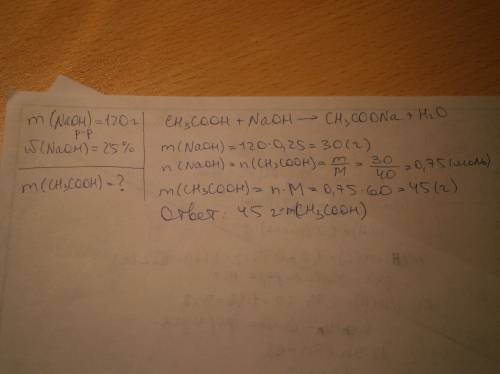 m(NaOH)=120г
р-р
ω(NaOH)=25%
m(CH₃COOH)=?
CH₃COOH + NaOH → CH₃COONa + H₂O
m(NaOH)=120·0,25=30(г)
n(NaOH)=n(CH₃COOH)=m/M=30/40=0,75(моль)
m(CH₃COOH)=n·M=0,75·60=45(г)
Ответ: 45 г m(CH₃COOH)